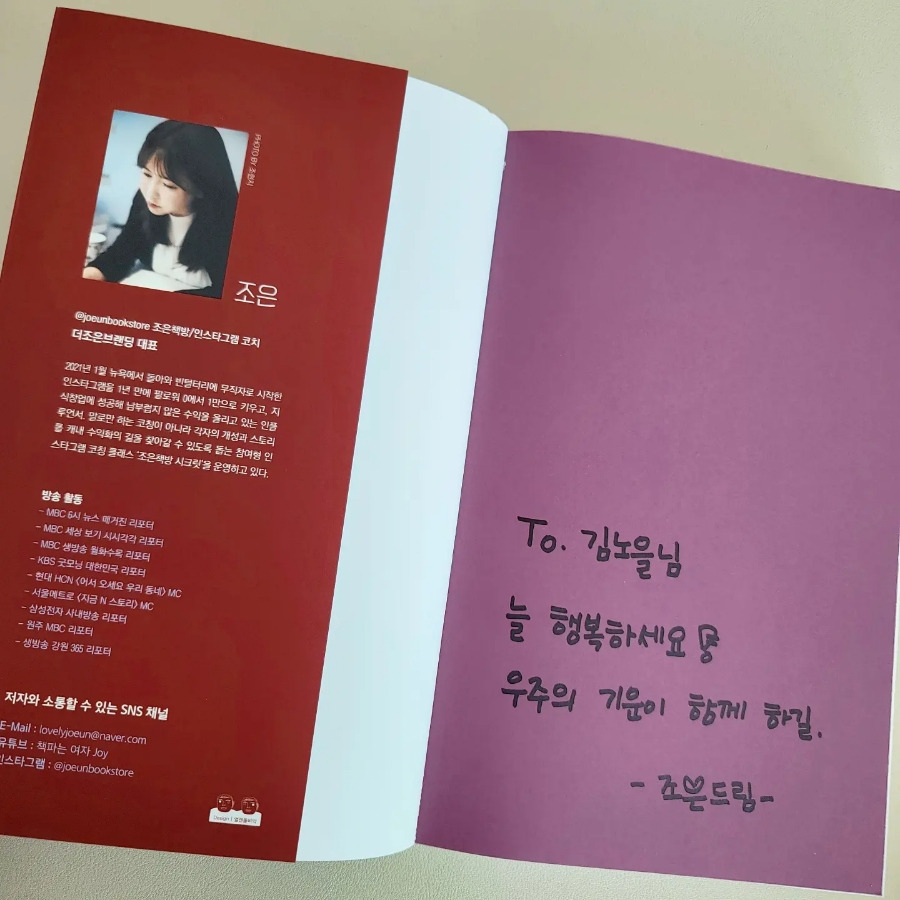 PHOTO BY 조현지
조은
@joeunbookstore 조은책방/인스타그램 코치
더조은브랜딩 대표
2021년 1월 뉴욕에서 돌아와 빈털터리에 무직자로 시작한
인스타그램을 1년 만에 팔로워 0에서 1만으로 키우고, 지
식창업에 성공해 남부럽지 않은 수익을 올리고 있는 인플
루언서. 말로만 하는 코칭이 아니라 각자의 개성과 스토리
를 캐내 수익화의 길을 찾아갈 수 있도록 돕는 참여형 인
스타그램 코칭 클래스 '조은책방 시크릿'을 운영하고 있다.
방송 활동
- MBC 6시 뉴스 매거진 리포터
- MBC 세상 보기 시시각각 리포터
- MBC 생방송 월화수목 리포터
- KBS 굿모닝 대한민국 리포터
- 현대 HCN <어서 오세요 우리 동네> MC
- 서울메트로 <지금 N 스토리> MC
- 삼성전자 사내방송 리포터
- 원주 MBC 리포터
- 생방송 강원 365 리포터
저자와 소통할 수 있는 SNS 채널
E-Mail : lovelyjoeun@naver.com
유튜브 : 책파는 여자 Joy
인스타그램 : @joeunbookstore
Design |
To. 김노을님
늘 행복하세요
우주의 기운이 함께 하길.
- 조은드림 -